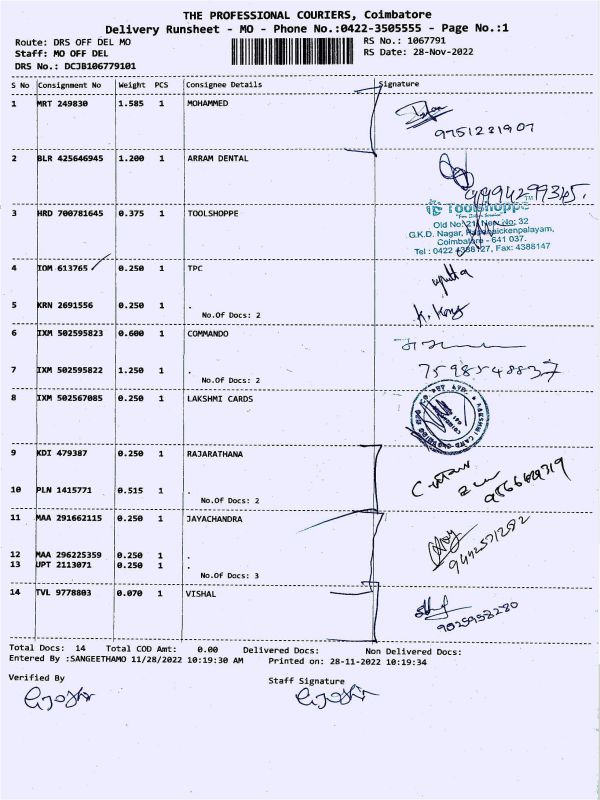 THE PROFESSIONAL COURIERS, Coimbatore
Delivery Runsheet - MO - Phone No.:0422-3505555 - Page No.:1
Route: DRS OFF DEL MO
Staff: MO OFF DEL
DRS No.: DCJB106779101
RS No.: 1067791
RS Date: 28-Nov-2022
S No Consignment No Weight PCS Consignee Details Signature
1 MRT 249830 1.585 1 MOHAMMED
9751231907
2 BLR 425646945 1.200 1 ARRAM DENTAL
3 HRD 700781645 0.375 1 TOOLSHOPPE
Toolshoppe
Old No: 21, New No: 32
G.K.D. Nagar, Pappanaickenpalayam,
Coimbatore - 641 037.
Tel : 0422 4388127, Fax: 4388147
4 IOM 613765 0.250 1 TPC
5 KRN 2691556 0.250 1 .
No.Of Docs: 2
6 IXM 502595823 0.600 1 COMMANDO
7 IXM 502595822 1.250 1 .
7598548837
No.Of Docs: 2
8 IXM 502567085 0.250 1 LAKSHMI CARDS
9 KDI 479387 0.250 1 RAJARATHANA
10 PLN 1415771 0.515 1 .
No.Of Docs: 2
11 MAA 291662115 0.250 1 JAYACHANDRA
12 MAA 296225359 0.250 1 .
13 UPT 2113071 0.250 1 .
No.Of Docs: 3
14 TVL 9778803 0.070 1 VISHAL
Total Docs: 14 Total COD Amt: 0.00 Delivered Docs: Non Delivered Docs:
Entered By :SANGEETHAMO 11/28/2022 10:19:30 AM Printed on: 28-11-2022 10:19:34
Verified By Staff Signature